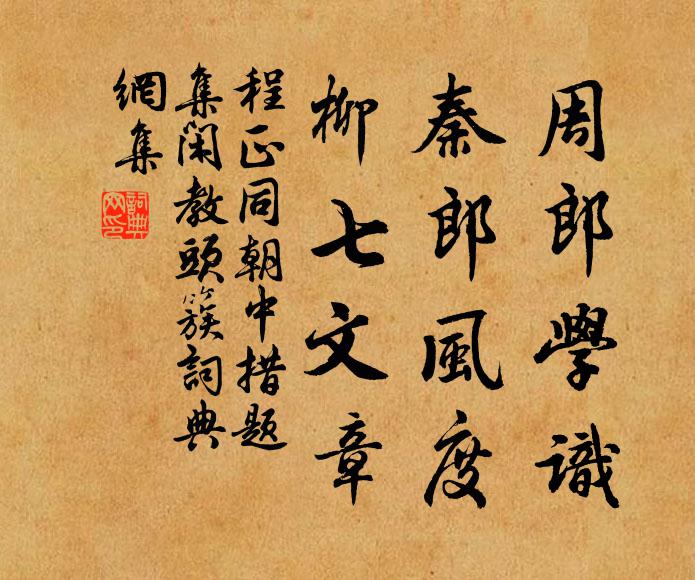 周郎學識
秦郎風度
柳七文章
程正同朝中措题
集閑教頭簇詞典
網集
詞典
网印